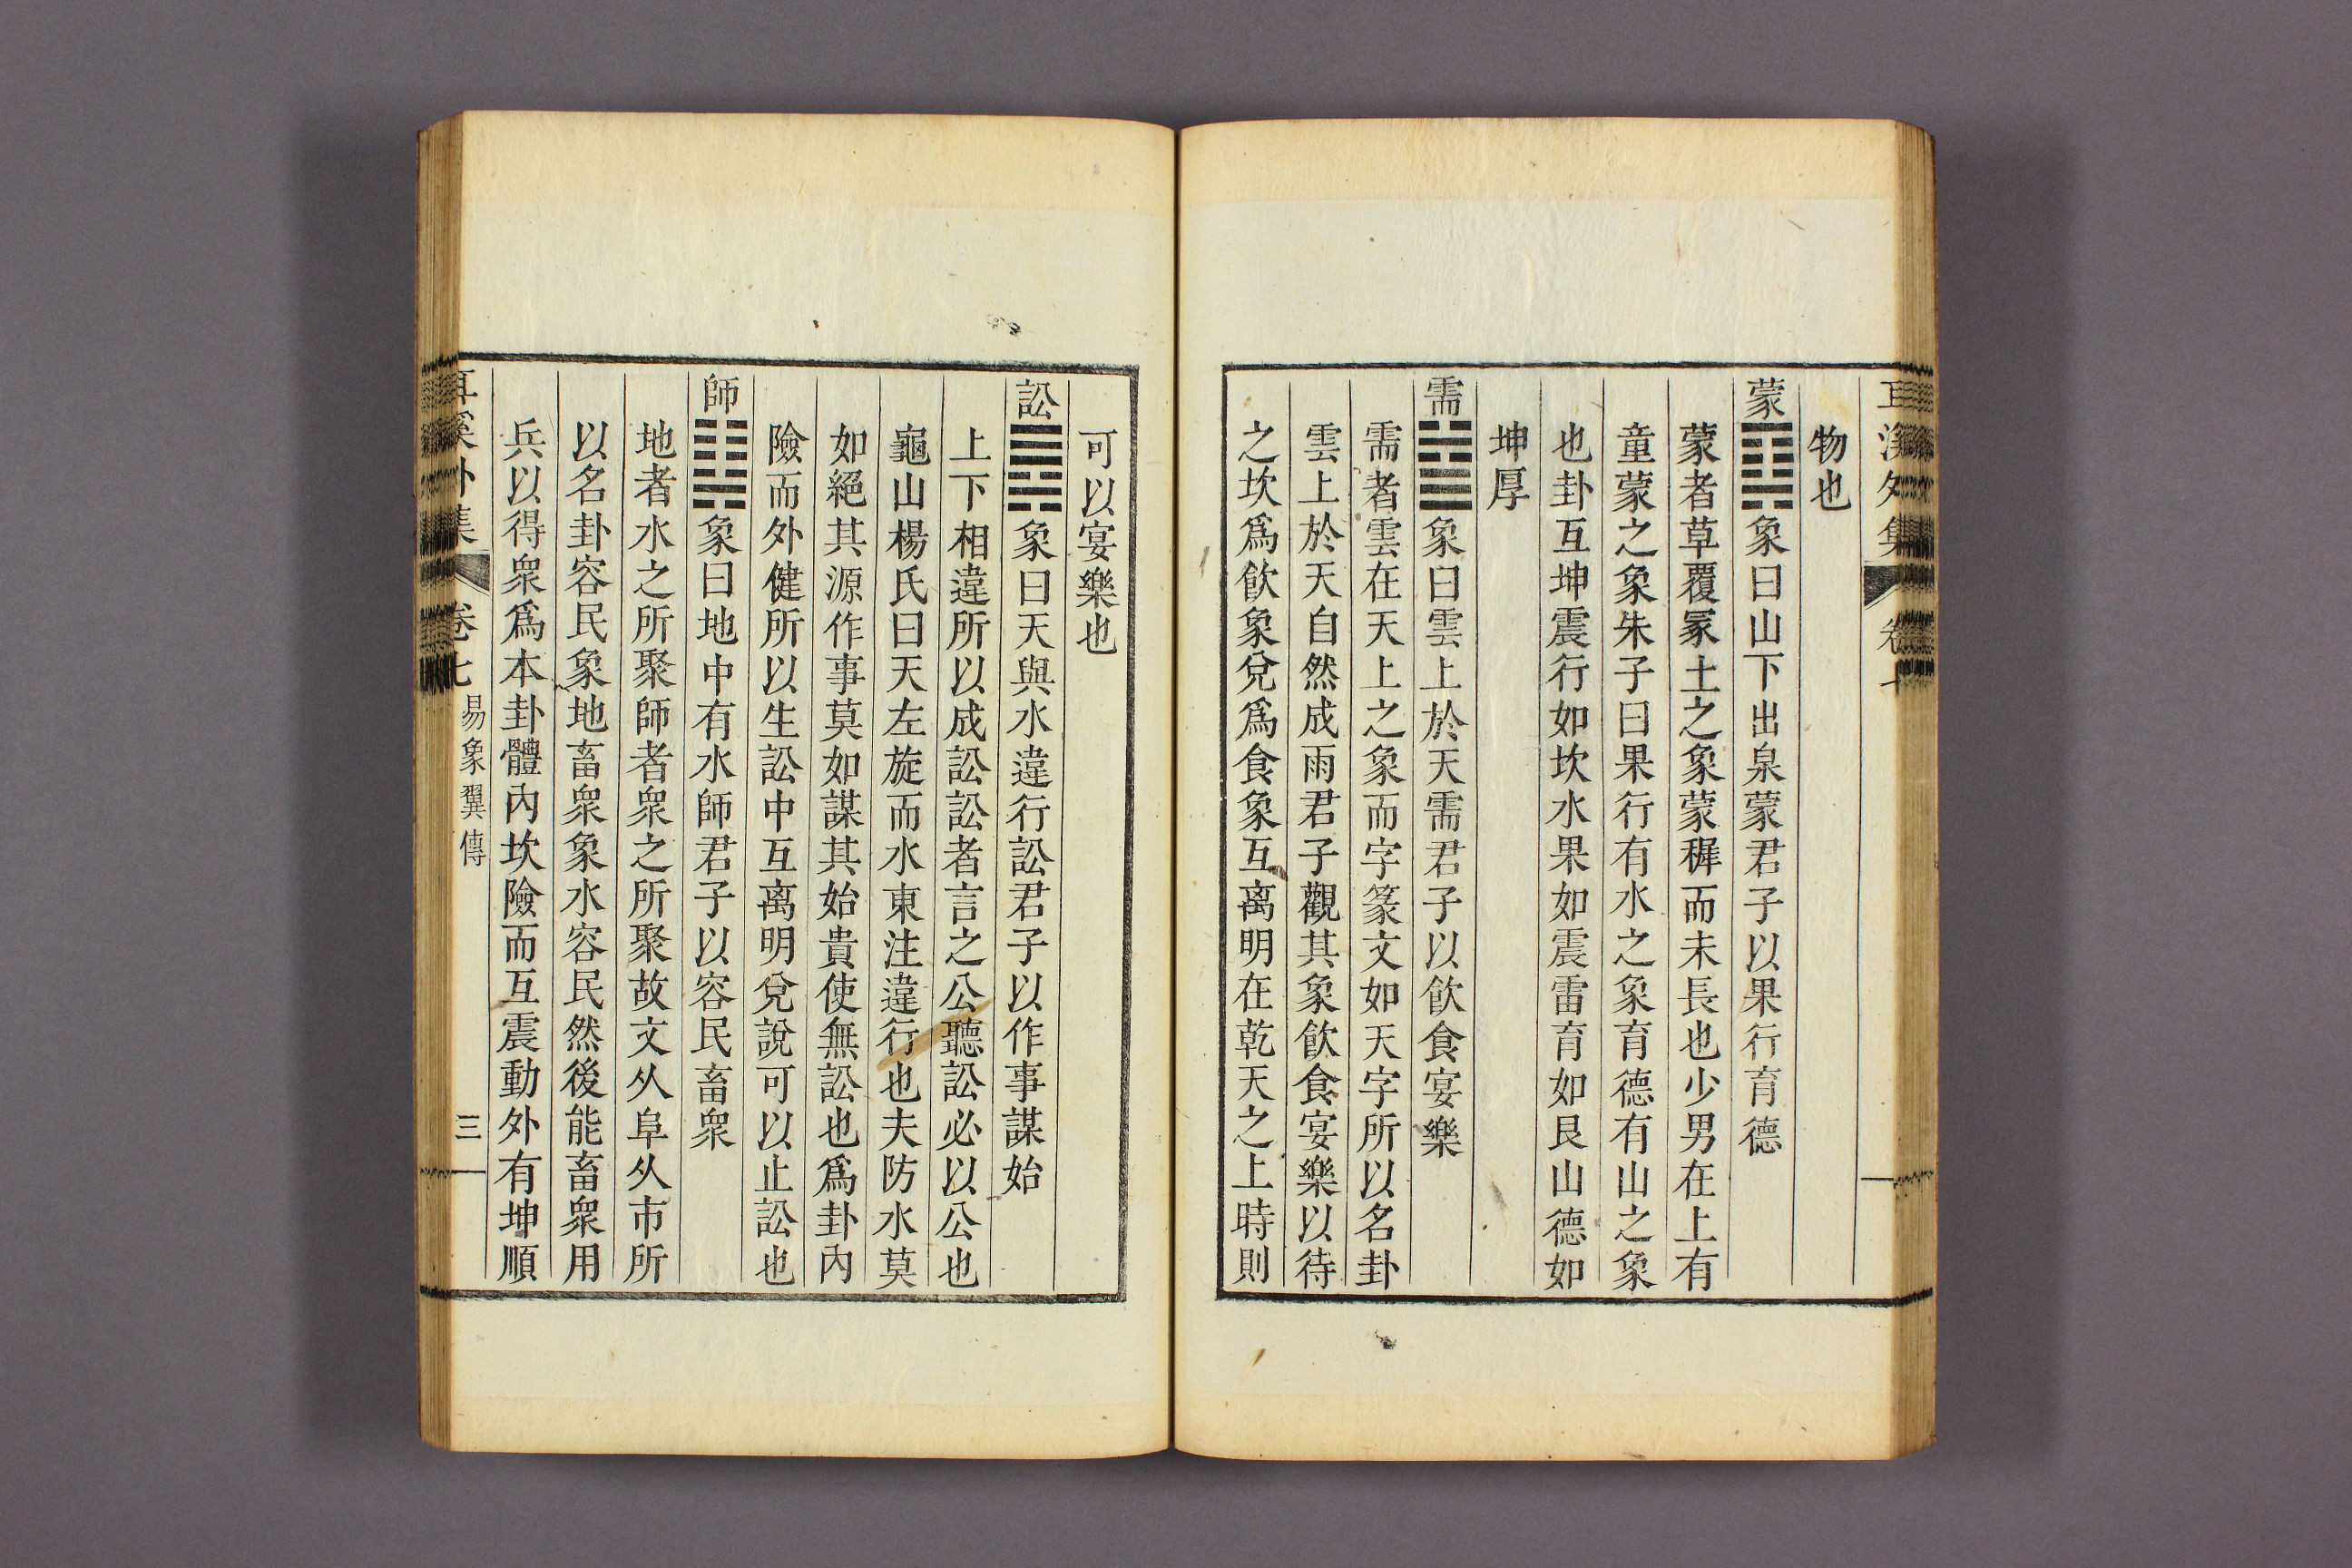 物也
蒙䷃象曰山下出泉蒙君子以果行育德
蒙者草覆冡土之象蒙穉而未長也少男在上有
童蒙之象朱子曰果行有水之象育德有山之象
也卦互坤震行如坎水果如震雷育如艮山德如
坤厚
需䷄象曰雲上於天需君子以飮食宴樂
需者雲在天上之象而字篆文如天字所以名卦
雲上於天自然成雨君子觀其象飮食宴樂以待
之坎爲飮象兌爲食象互离明在乾天之上時則
可以宴樂也
訟䷅象曰天與水違行訟君子以作事謀始
上下相違所以成訟訟者言之公聽訟必以公也
龜山楊氏曰天左旋而水東注違行也夫防水莫
如絕其源作事莫如謀其始貴使無訟也爲卦內
險而外健所以生訟中互离明兌說可以止訟也
師䷆象曰地中有水師君子以容民畜衆
地者水之所聚師者衆之所聚故文从阜从帀所
以名卦容民象地畜衆象水容民然後能畜衆用
兵以得衆爲本卦體內坎險而互震動外有坤順
耳溪外集 卷七 易象翼傳 三